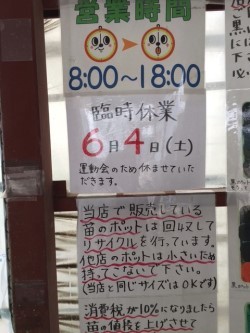 営業時間
8:00~18:00
臨時休業
6月4日(土)
運動会のため休ませていた
だきます。
当店で販売している
苗のポットは回収して
リサイクルを行っています。
他店のポットは小さいため
持ってこないで下さい。
(当店と同じサイズはOKです)
消費税が10%になりましたら
苗の値段を上げさせて